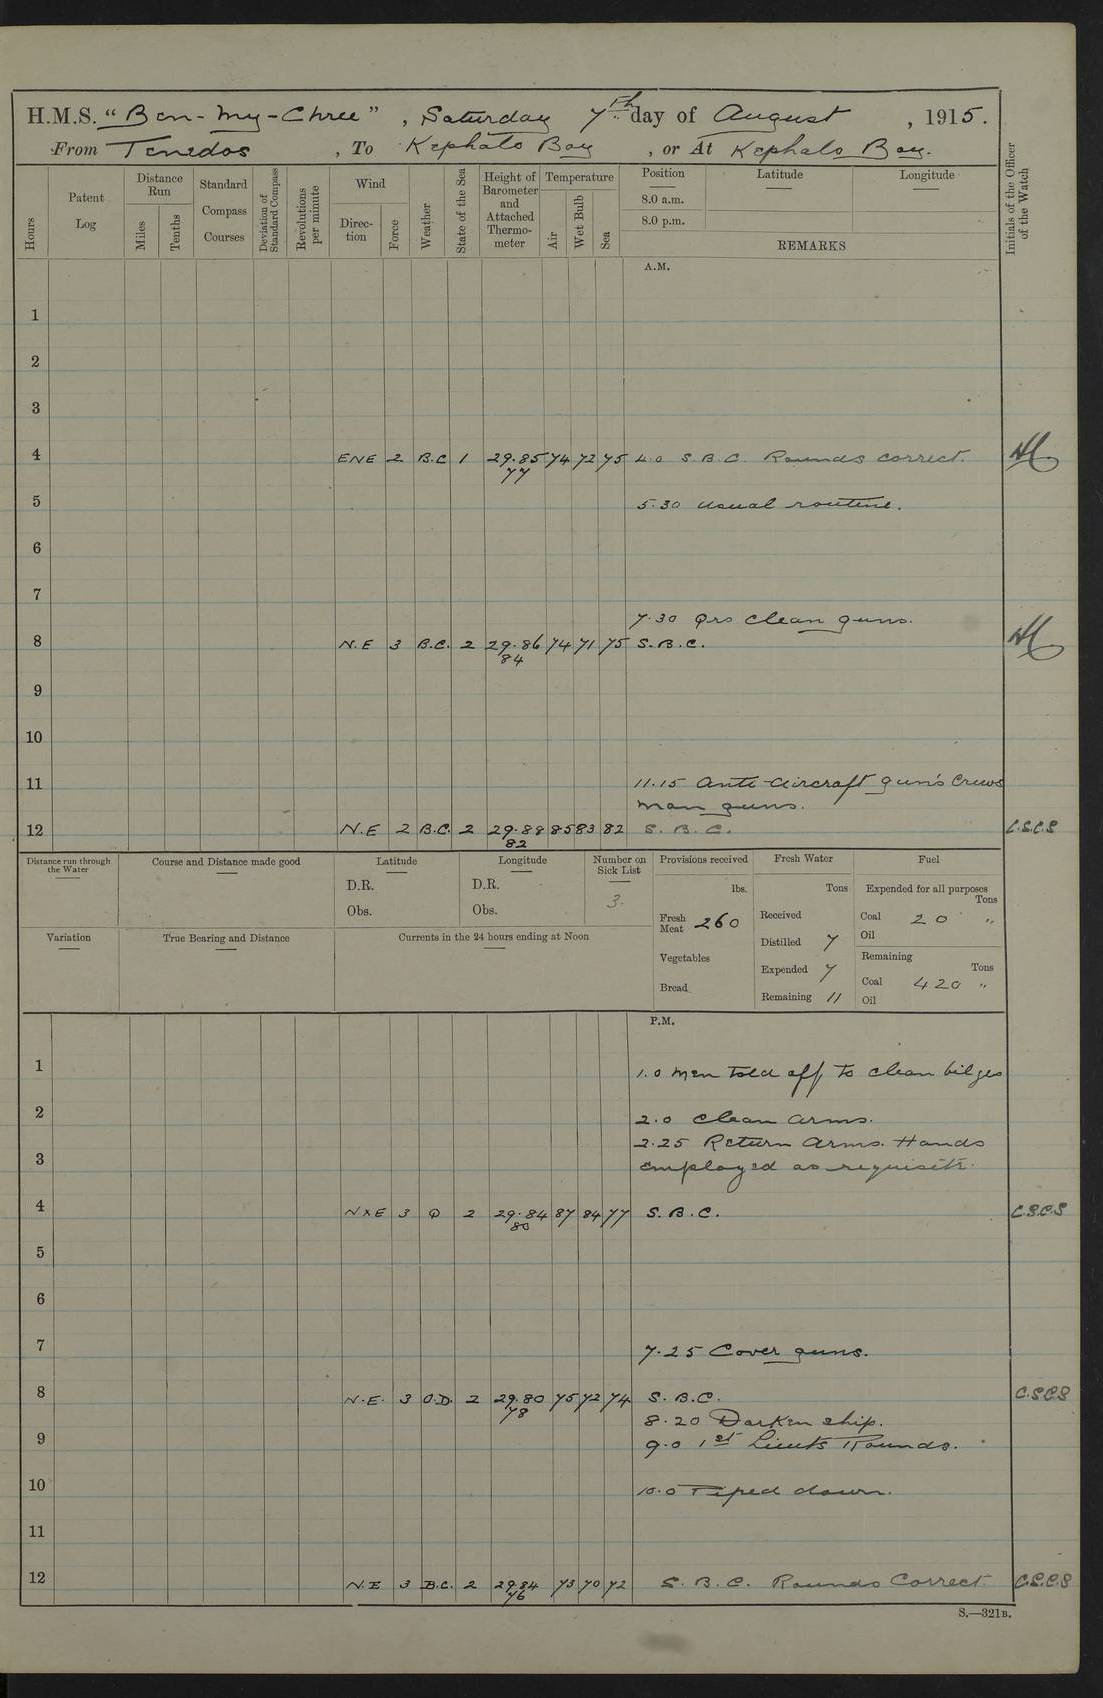 H.M.S. “Ben-my-Chree”, Saturday 7th day of August, 1915.
From Tenedos, To Kephalo Bay, or At Kephalo Bay.
Hours
Patent Log
Distance Run
Miles
Tenths
Standard Compass Courses
Deviation of Standard Compass
Revolutions per minute
Wind
Direc-tion
Force
Weather
State of the Sea
Height of Barometer and Attached Thermo-meter
Temperature
Air
Wet Bulb
Sea
Position
8.0 a.m.
8.0 p.m.
Latitude
Longitude
REMARKS
Initials of the Officer of the Watch
A.M.
1
2
3
4 ENE 2 B.C 1 29.85 74 72 75 4.0 S.B.C. Rounds correct.
77
5 5.30 usual routine.
6
7
7.30 Qrs clean guns.
8 N.E 3 B.C. 2 29.86 74 71 75 S.B.C.
84
9
10
11 11.15 Anti-Aircraft gun's Crews
man guns.
12 N.E 2 B.C. 2 29.88 85 83 82 S.B.C. C.S.C.S
82
Distance run through the Water
Course and Distance made good
Latitude
D.R.
Obs.
Longitude
D.R.
Obs.
Number on Sick List
3.
Provisions received
lbs.
Fresh Meat 260
Vegetables
Bread
Fresh Water
Tons
Received
Distilled 7
Expended 7
Remaining 11
Fuel
Expended for all purposes
Tons
Coal 20 "
Oil
Remaining
Tons
Coal 420 "
Oil
Variation
True Bearing and Distance
Currents in the 24 hours ending at Noon
P.M.
1 1.0 Men told off to clean bilges
2 2.0 Clean arms.
2.25 Return Arms. Hands
3 employed as requisite.
4 NxE 3 O 2 29.84 87 84 77 S.B.C. C.S.C.S
80
5
6
7 7.25 Cover guns.
8 N.E. 3 O.D. 2 29.80 75 72 74 S.B.C. C.S.C.S
78
8.20 Darken ship.
9 9.0 1st Lieuts Rounds.
10 10.0 Piped down.
11
12 N.E 3 B.C. 2 29.84 73 70 72 S.B.C. Rounds Correct. C.S.C.S
76
S.—321B.